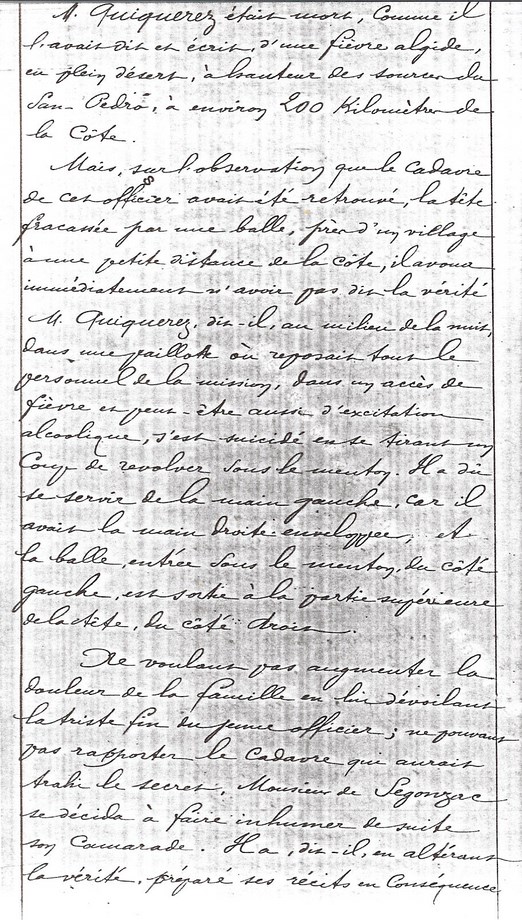 M. Quiquerez était mort, comme il
l'avait dit et écrit, d'une fièvre algide,
en plein désert, à hauteur des sources du
San-Pedro, à environ 200 Kilomètres de
la Côte.
Mais, sur l'observation que le cadavre
de cet officier avait été retrouvé, la tête
fracassée par une balle, près d'un village
à une petite distance de la côte, il avoua
immédiatement n'avoir pas dit la vérité
M. Quiquerez, dit-il, au milieu de la nuit,
dans une paillote où reposait tout le
personnel de la mission, dans un accès de
fièvre et peut-être aussi d'excitation
alcoolique, s'est suicidé en se tirant un
Coup de revolver sous le menton. Il a dû
se servir de la main gauche, car il
avait la main droite enveloppée, et
la balle, entrée sous le menton, du côté
gauche, est sortie à la partie supérieure
de la tête, du côté droit.
Ne voulant pas augmenter la
douleur de la famille en lui dévoilant
la triste fin du jeune officier ; ne pouvant
pas rapporter le cadavre qui aurait
trahi le secret, Monsieur de Segonzac
se décida à faire inhumer de suite
son Camarade. Il a, dit-il, en altérant
la vérité, préparé ses récits en Conséquence